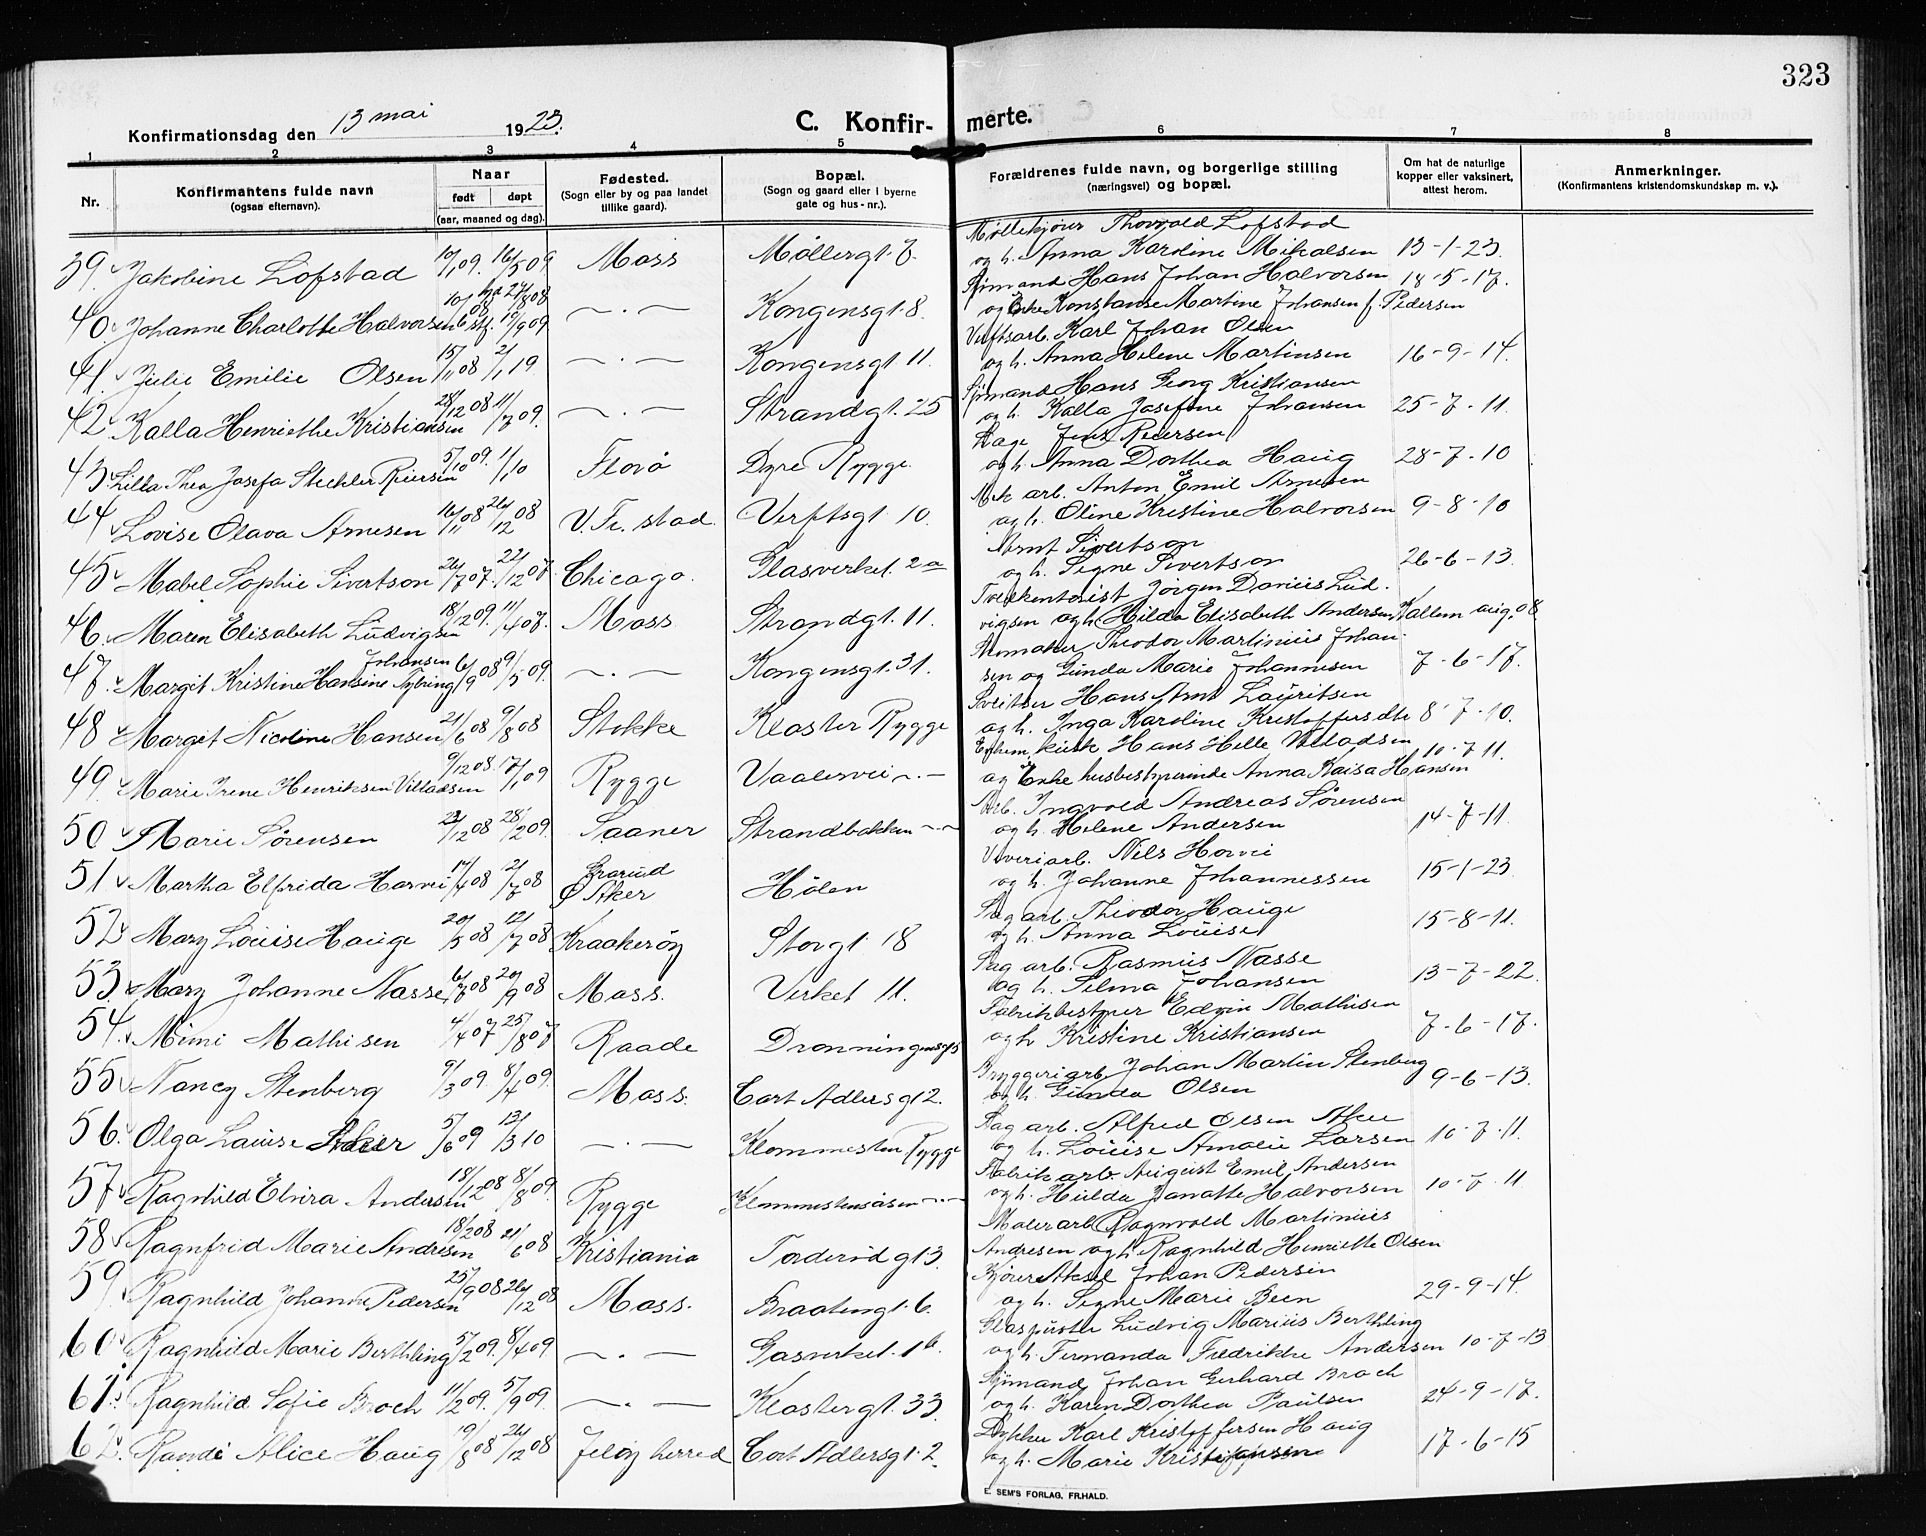 323
Konfirmationsdag den 13 mai 1923.
C. Konfir- merte.
1 2 3 4 5 6 7 8
Nr.
Konfirmantens fulde navn
(ogsaa efternavn).
Naar
født døpt
(aar, maaned og dag).
Fødested.
(Sogn eller by og paa landet
tillike gaard).
Bopæl.
(Sogn og gaard eller i byerne
gate og hus-nr.).
Forældrenes fulde navn, og borgerlige stilling
(næringsvei) og bopæl.
Om hat de naturlige
kopper eller vaksinert,
attest herom.
Anmerkninger.
(Konfirmantens kristendomskundskap m. v.).
Møllekjører Thorvald Lofstad
39. Jakobine Lofstad 10/1 09. 16/5 09 Moss Møllergt. 7. og h. Anna Karoline Mikalsen 13-1-23.
Sjømand Hans Johan Halvorsen 18-5-17.
40. Johanne Charlotte Halvorsen —.— Kongensgt. 8. og Enke Konstanse Martine Johansen f. Pedersen
Verftsarb. Karl Johan Olsen
41. Julie Emilie Olsen 15/1 08 2/1 19 —.— Kongensgt. 11. og h. Anna Helene Martinsen 16-9-14.
Sjømand Hans Georg Kristiansen
42 Kalla Henriette Kristiansen 28/12 08 11/7 09. —.— Strandgt. 25 og h. Kalla Josefine Johansen 25-7-11.
Jens Reiersen
43. Lilla Thea Josefa Stechler Reiersen 5/10 09. 1/10 Florø Dyre Rygge. og h. Anna Dorthea Haug 28-7-10
Mek arb. Anton Emil Arnesen
44 Lovise Olava Arnesen 16/11 08 26/12 08 V. Fr. stad. Verftsgt. 10. og h. Oline Kristine Halvorsen 9-8-10
Arnt Sivertson
45 Mabel Sophie Sivertson 24/7 07. 22/12 07. Chicago. Glasverket. 2a og h. Signe Sivertson 26-6-13.
Jørgen Darius Lud-
46. Maren Elisabeth Ludvigsen 18/12 09. 11/4 08. Moss Strandgt. 11. vigsen og h. Hilda Elisabeth Andersen, Kallum aug. 08
Theodor Martinius Johan-
Johansen
47. Margit Kristine Hansine Nybring 6/9 08 9/5 09. —.— Kongensgt. 31. sen og Gunda Marie Johannesen 7-6-17.
Sveitser Hans Arnt Lauritsen
48 Margit Nicoline Hansen 21/6 08 9/8 08 Stokke Kloster Rygge og h. Inga Karoline Kristoffersdtr 8-7-10.
kusk Hans Helle Villadsen
49. Marie Irene Henriksen Villadsen 9/12 08. 17/1 09 Rygge Vaalervei —.— og Enke husbestyrerinde Anna Kaisa Hansen 10-7-11.
Arb. Ingvold Andreas Sørensen
50 Marie Sørensen 23/12 08 28/2 09. Saaner Strandbakken —.— og h. Helene Andersen 14-7-11.
Væveriarb. Nils Horvei
51 Martha Elfrida Harvei 17/4 08 2/7 08 Grorud Ø Aker Hølen og h. Johanne Johannessen 15-1-23.
Sag arb. Theodor Hauge
52 Mary Louise Hauge 20/5 08 12/7 08 Kraakerøy Storgt. 18 og h. Anna Louise 15-8-11.
Sag arb. Rasmus Nasse
53. Mary Johanne Nasse 6/7 08 20/9 08 Moss. Verket 11. og h. Selma Johansen 13-7-22.
Fabrikbestyrer Edvin Mathisen
54. Mimi Mathisen 4/4 07 25/8 07 Raade Dronningensgt 5 og h Kristine Kristiansen 7-6-17.
Bryggeriarb Johan Martin Stenberg
55 Nancy Stenberg 9/3 09. 8/4 09. Moss. Cort Adlersgt 2. og h. Gunda Olsen 9-6-13.
Sag arb. Alfred Olsen Aker
56. Olga Lauise Aker 5/6 09 13/3 10 —.— Klommesten Rygge og h. Louise Amalie Larsen 10-7-11.
Fabrik arb. August Emil Andersen
57 Ragnhild Elvira Andersen 18/12 08 8/8 09. Rygge Klommestensåsen —.— og h. Hulda Janatte Halvorsen 10-7-11
Malerarb Ragnvald Martinius
58 Ragnfrid Marie Andresen 18/2 08 21/6 08 Kristiania Tordenod g 13. Andresen og h. Ragnhild Henriette Olsen
Kjører Aksel Johan Pedersen
59 Ragnhild Johanne Pedersen 25/9 08 26/12 08 Moss. Braatengt. 6. og h. Signe Marie Been 29-9-14.
Glaspuster Ludvig Marius Berthling
60 Ragnhild Marie Berthling 5/2 09. 8/4 09. —.— Gasverket. 1b. og h. Fernanda Fredrikke Andersen 10-7-13
Sjømand Johan Gerhard Broch
61. Ragnhild Sofie Broch 11/2 09. 5/9 09. —.— Klostergt. 33. og h. Karen Dorthea Paulsen 24-9-17.
Dykker Karl Kristoffersen Haug
62. Randi Alice Haug 19/8 08 26/12 08 Jeløy herred Cort Adlersgt. 2. og h. Marie Kristiansen 17-6-15
E. SEM'S FORLAG, FR.HALD.